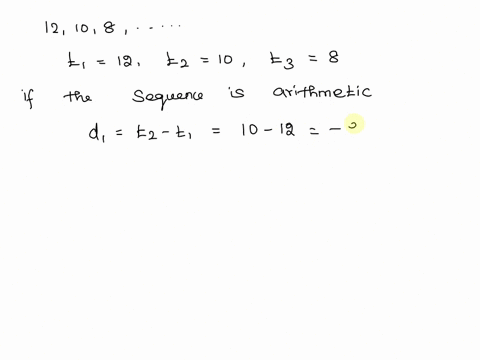 12, 10, 8, .....
t₁ = 12, t₂ = 10, t₃ = 8
if the sequence is arithmetic
d₁ = t₂ - t₁ = 10 - 12 = -